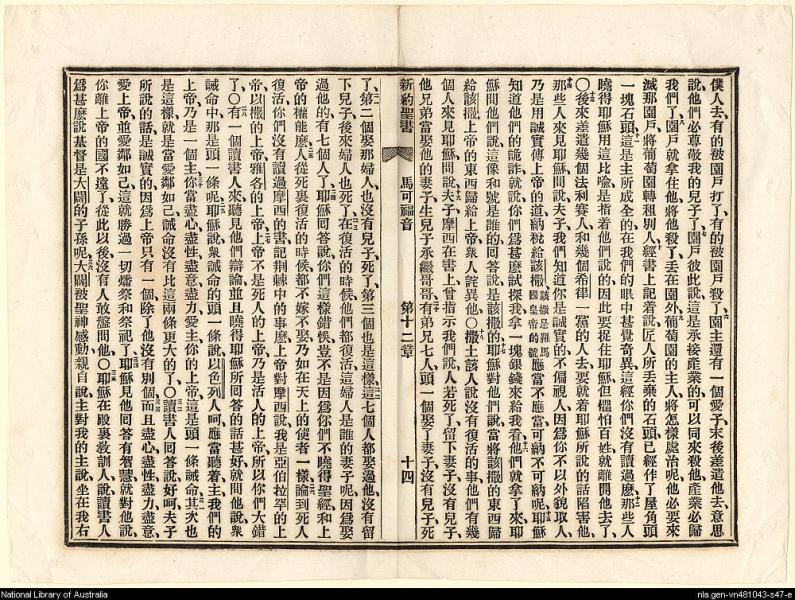 僕人去有的被園戶打了有的被園戶殺了園主還有一個愛子末後差遣他去意思
說他們必尊敬我的兒子了園戶彼此說這是承接產業的可以同來殺他產業必歸
我們了園戶就拿住他將他殺了丟在園外葡萄園的主人將怎樣處治呢他必要來
滅那園戶將葡萄園轉租別人經書上記着說匠人所丟棄的石頭已經作了屋角頭
一塊石頭這是主所成全的在我們的眼中甚覺奇異這經你們沒有讀過麽那些人
曉得耶穌用這比喻是指着他們說的因此要捉住耶穌但懼怕百姓就離開他去了
〇後來差遣幾個法利賽人和幾個希律一黨的人去要就着耶穌所說的話陷害他
那些人來見耶穌問說夫子我們知道你是誠實的不偏視人因爲你不以外貌取人
乃是用誠實傳上帝的道納稅給該撒該撒是羅馬國皇帝的號應當不應當可納不可納呢耶穌
知道他們的詭詐就說你們爲甚麽試探我拿一塊銀錢來給我看他們就拿了來耶
穌問他們說這像和號是誰的回答說是該撒的耶穌對他們說當將該撒的東西歸
給該撒上帝的東西歸給上帝衆人詫異他〇撒土該人說沒有復活的事他們有幾
個人來見耶穌問說夫子摩西在書上曾指示我們說人若死了留下妻子沒有兒子
他兄弟當娶他的妻子生兒子承繼哥哥有弟兄七人頭一個娶了妻子沒有兒子死
新約聖書 馬可福音 第十二章 十四
了第二個娶那婦人也沒有兒子死了第三個也是這樣這七個人都娶過他沒有留
下兒子後來婦人也死了在復活的時候他們都復活這婦人是誰的妻子呢因爲娶
過他的有七個人了耶穌回答說你們這樣錯悞豈不是因爲你們不曉得聖經和上
帝的權能麽人從死裏復活的時候都不嫁不娶乃如在天上的使者一樣論到死人
復活你們沒有讀過摩西的書記荆棘中的事麽上帝對摩西說我是亞伯拉罕的上
帝以撒的上帝雅各的上帝上帝不是死人的上帝乃是活人的上帝所以你們大錯
了〇有一個讀書人來聽見他們辯論並且曉得耶穌所回答的話甚好就問他說衆
誡命中那是頭一條呢耶穌說衆誡命的頭一條說以色列人呵應當聽着主我們的
上帝是一個主你當盡心盡性盡意盡力愛主你的上帝這是頭一條誡命其次也
是這樣就是當愛鄰如己誡命沒有比這兩條更大的了〇讀書人回答說好呵夫子
所說的話是誠實的因爲上帝只有一個除了他沒有別個而且盡心盡性盡力盡意
愛上帝並愛鄰如己這就勝過一切燔祭和祭祀了耶穌見他回答有智慧就對他說
你離上帝的國不遠了從此以後沒有人敢盤問他〇耶穌在殿裏敎訓人說讀書人
爲甚麽說基督是大闢的子孫呢大闢被聖神感動親自說主對我的主說坐在我右
National Library of Australia
nla.gen-vn481043-s47-e